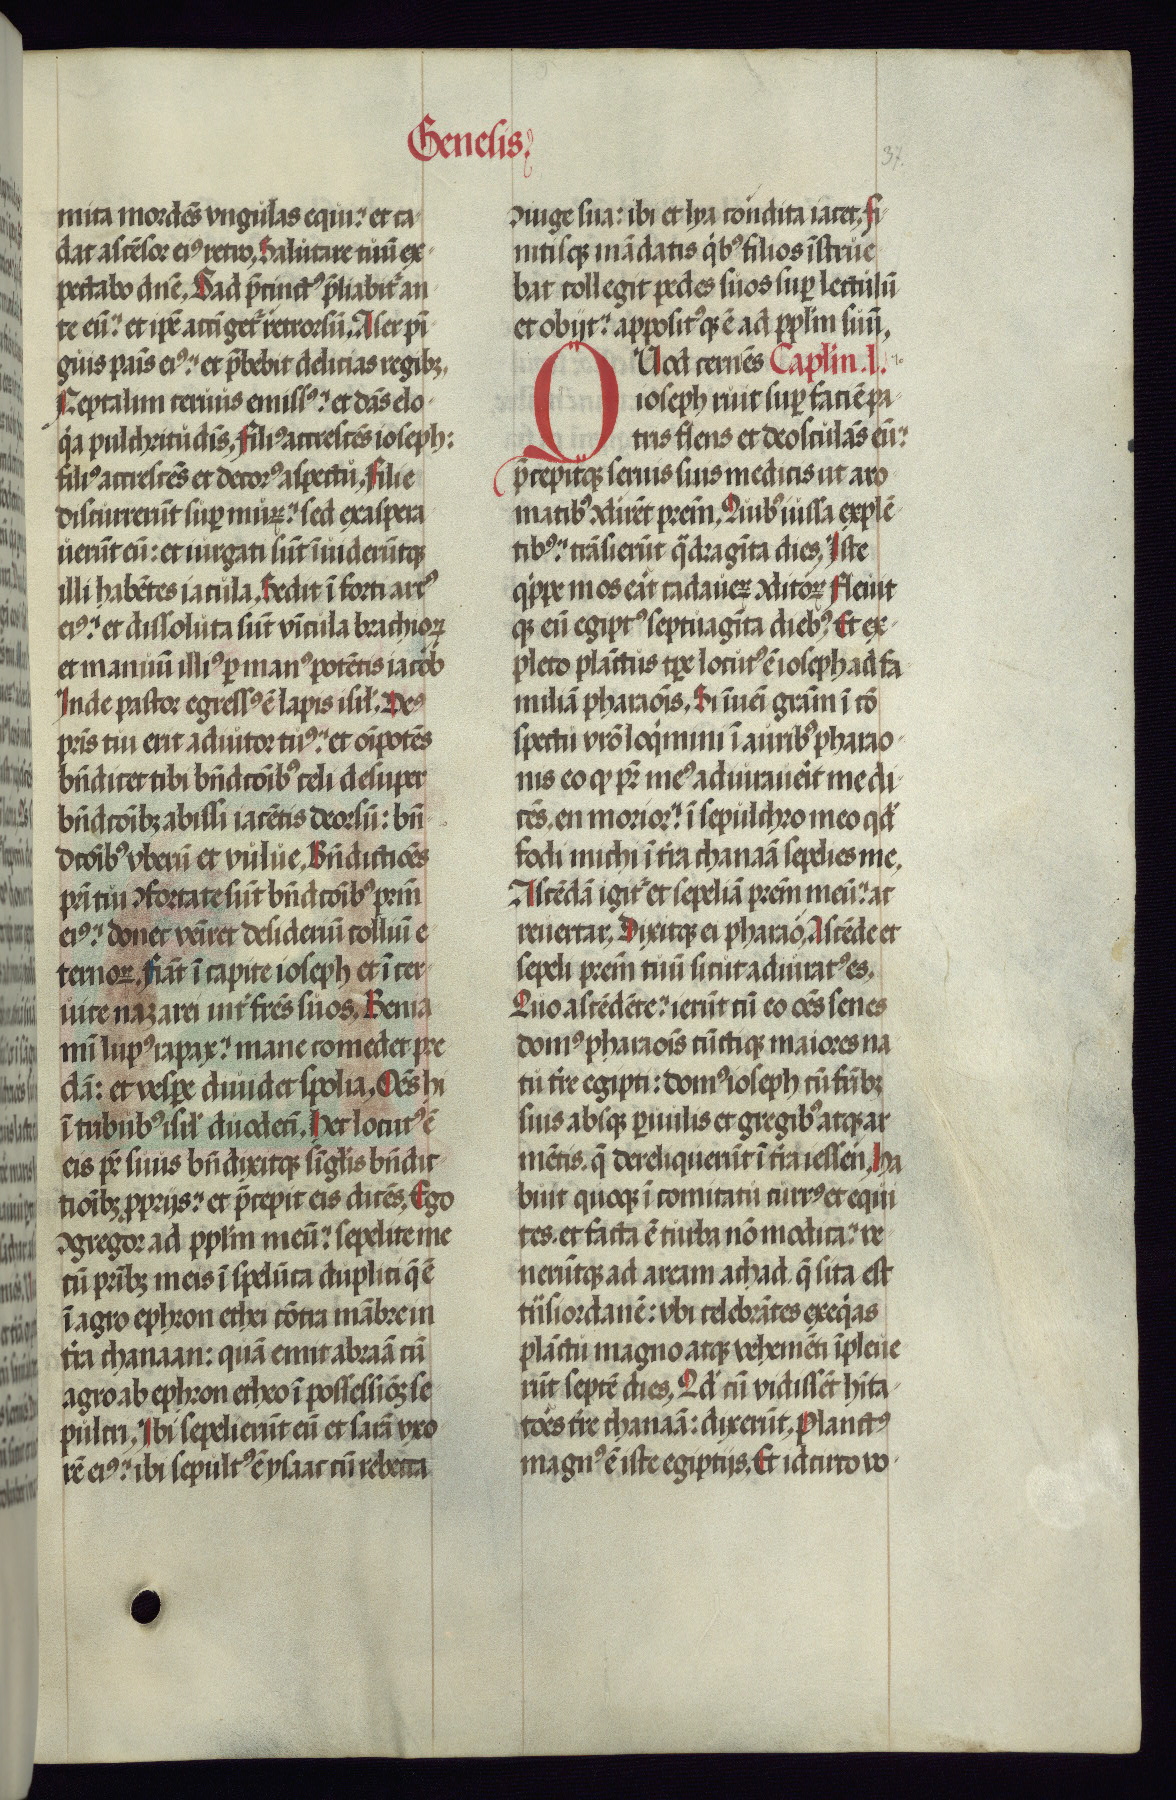 Genesis
37.
mita mordēs vngulas equi: et ca-
dat ascēsor eiꝰ retro, Salutare tuū ex-
pectabo dnē, Gad p̄cinctꝰ p̄liabit᷑ an-
te eū: et ip̄e accīget᷑ retrorsū, Aser pī-
guis panis eiꝰ: et p̄bebit delicias regibꝫ,
Neptalim ceruus emissꝰ: et dās elo-
q̇a pulchritudīs, Filiꝰ accrescēs ioseph:
filiꝰ accrescēs et decorꝰ aspectu, Filie
discurrerūt sup̲ murꝝ: sed exaspera
uerūt eū: et iurgati sūt īuiderūtqꝫ
illi habētes iacula, Sedit ī forti arcꝰ
eiꝰ: et dissoluta sūt vīcula brachioꝝ
et manuū illiꝰ ꝑ manꝰ potētis iacob
Inde pastor egressꝰ ē lapis isrl̄, Deꝰ
pr̄is tui erit adiutor tuꝰ: et oīpotēs
bn̄dicet tibi bn̄dcōibꝰ celi desuper
bn̄dcōibꝫ abissi iacētis deorsū: bn̄
dcōibꝰ vberū et vulue, Bn̄dictiōes
pr̄is tui ꝯfortate sūt bn̄dcōibꝰ prm̄
eiꝰ: donec veīret desideriū colliū e
ternoꝝ, Fiāt ī capite ioseph et ī ver-
uice nazarei int᷑ fr̄es suos, Benia
mī lupꝰ rapax: mane comedet pre
dā: et vesꝑe diuidet spolia, Oēs hi
ī tribubꝰ isrl̄ duodecī, Hec locutꝰ ē
eis pr̄ suus bn̄dixitqꝫ sīgl̄is bn̄dic-
tiōibꝫ ꝓprijs: et p̄cepit eis dicēs, Ego
ꝯgregor ad ppl̄m meū: sepelite me
cū pr̄ibꝫ meis ī spelūca duplici q̄ ē
ī agro ephron ethei cōtra mābre in
t̄ra chanaan: quā emit abraā cū
agro ab ephron etheo ī possessiōꝫ se
pulcri, Ibi sepelierūt eū et sarā vxo
rē eiꝰ: ibi sepultꝰ ē ysaac cū rebecca
ꝯiuge sua: ibi et lya condita iacet, Fi-
nitisqꝫ mādatis q̇bꝰ filios īstrue
bat collegit pedes suos sup̲ lectulū
et obijt: appositꝰqꝫ ē ad ppl̄m suū,
QUod cernēs Capl̄m .l.
ioseph ruit sup̲ faciē pa-
tris flens et deosculās eū:
p̄cepitqꝫ seruis suis medicis ut aro
matibꝰ ꝯdirēt prēm, Quibꝰ iussa explē
tibꝰ: trāsierūt q̄dragīta dies, Iste
q̇ppe mos erāt cadaueꝝ ꝯditoꝝ Fleuit
qꝫ eū egiptꝰ septuagīta diebꝰ, Et ex-
pleto plāctus tꝑe locutꝰ ē ioseph ad fa
miliā pharaōis, Si īueī grām ī cō
spectu vrō loq̇mini ī auribꝰ pharao-
nis eo qꝙ pr̄ meꝰ adiurauerit me di-
cēs, en morior: ī sepulchro meo qd̄
fodi michi ī t̄ra chanaā sepelies me,
Ascēdā igit᷑ et sepeliā prēm meū: ac
reuertar, Dixitqꝫ ei pharao, Ascēde et
sepeli prēm tuū sicut adiuratꝰ es,
Quo ascēdēte: ierūt cū eo oēs senes
domꝰ pharaōis cūctiqꝫ maiores na
tu t̄re egipti: domꝰ ioseph cū fr̄ibꝫ
suis absqꝫ ꝑuulis et gregibꝰ atqꝫ ar
mētis, q̄ dereliquerūt ī t̄ra iessen, Ha
buit quoqꝫ ī comitatu currꝰ et equi
tes, et facta ē turba nō modica: ve
nerūtqꝫ ad aream achad, q̄ sita est
trās iordanē: vbi celebrātes exeq̇as
plāctu magno atqꝫ vehemēti īpleue
rūt septē dies, Qd̄ cū vidissēt hīta-
tōes t̄re chanaā: dixerūt, Planctꝰ
magnꝰ ē iste egiptijs, Et idcirco vo-